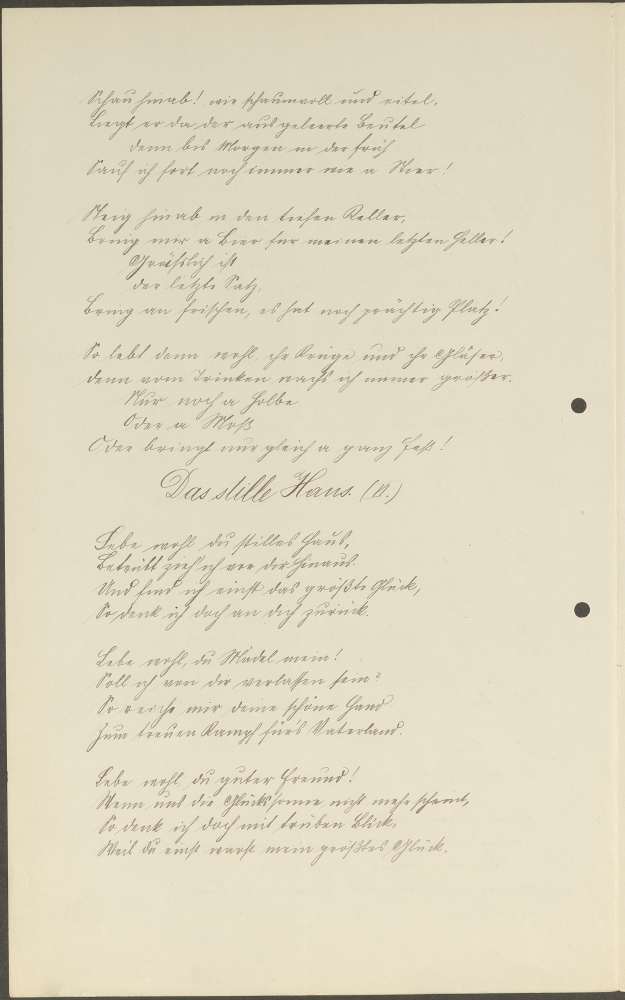 Schau hinab! wie schaumvoll und eitel,
Liegt er da, der ausgeleerte Beutel
denn bis Morgen in der früh
Sauf ich fort noch immer wie a Stier!
Steig hinab in den tiefen Keller,
Bring mir a Bier für meinen letzten Heller!
Grässlich ist
der letzte Satz,
Bring an frischen, es hat noch prächtig Platz!
So lebt denn wohl, ihr Krüge und ihr Gläser,
denn vom Trinken wachs ich immer größer.
Nur noch a Halbe
Oder a Maß
Oder bringt nur gleich a ganz Faß!
Das stille Haus. (A.)
Lebe wohl, du stilles Haus,
Betrübt zieh ich vor dir hinaus.
Und find ich einst das größte Glück,
So denk ich doch an dich zurück.
Lebe wohl, du Mädel mein!
Soll ich von dir verlassen sein?
So reiche mir deine schöne Hand
Zum treuen Kampf für's Vaterland.
Lebe wohl, du guter Freund!
Wenn uns die Glückssonne nicht mehr scheint,
So denk ich doch mit trüben Blick,
Weil du einst warst mein größtes Glück.